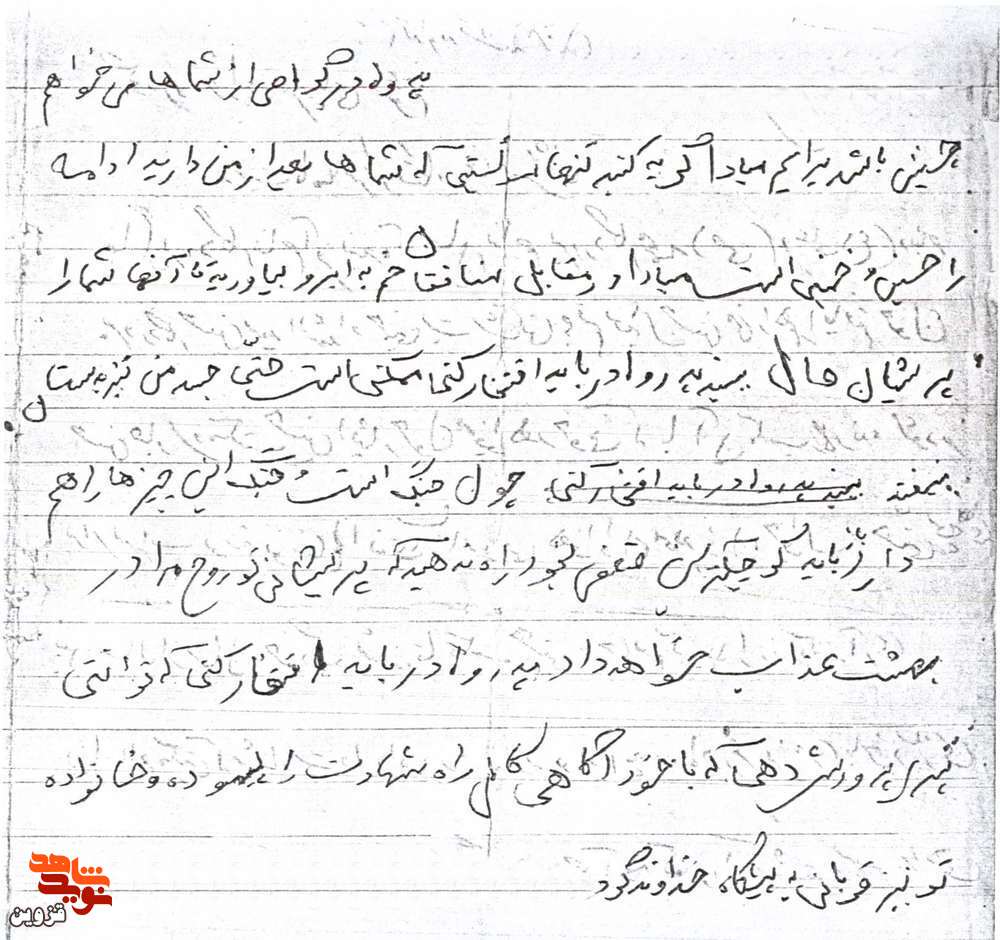 پدر و مادر گرامی از شماها می خواهم
حسینی باشید برایم مبادا گریه کنید تنها نیستید که شماها بعد از من دارید ادامه
راه حسین و خمینی است مبادا در مقابل منافقان خم به ابرو بیاورید تا آنها شما را
پریشان حال ببینند پدر و مادر باید افتخار کنی ممکن است حتّی جسد من نیز بدستان
نیفتد چون جنگ است و جنگ این چیزها را هم
دارد باید کوچکترین ضعفی بخود راه ندهید که پریشانی تو روح مرا در
بهشت عذاب خواهد داد پدر و مادر باید افتخار کنی که توانستی
پرورش دهی که با خود آگاهی کامل راه شهادت را پیموده و خانواده
تو نیز قربانی به پیشگاه خداوند کرد
نوید شاهد
قزوین